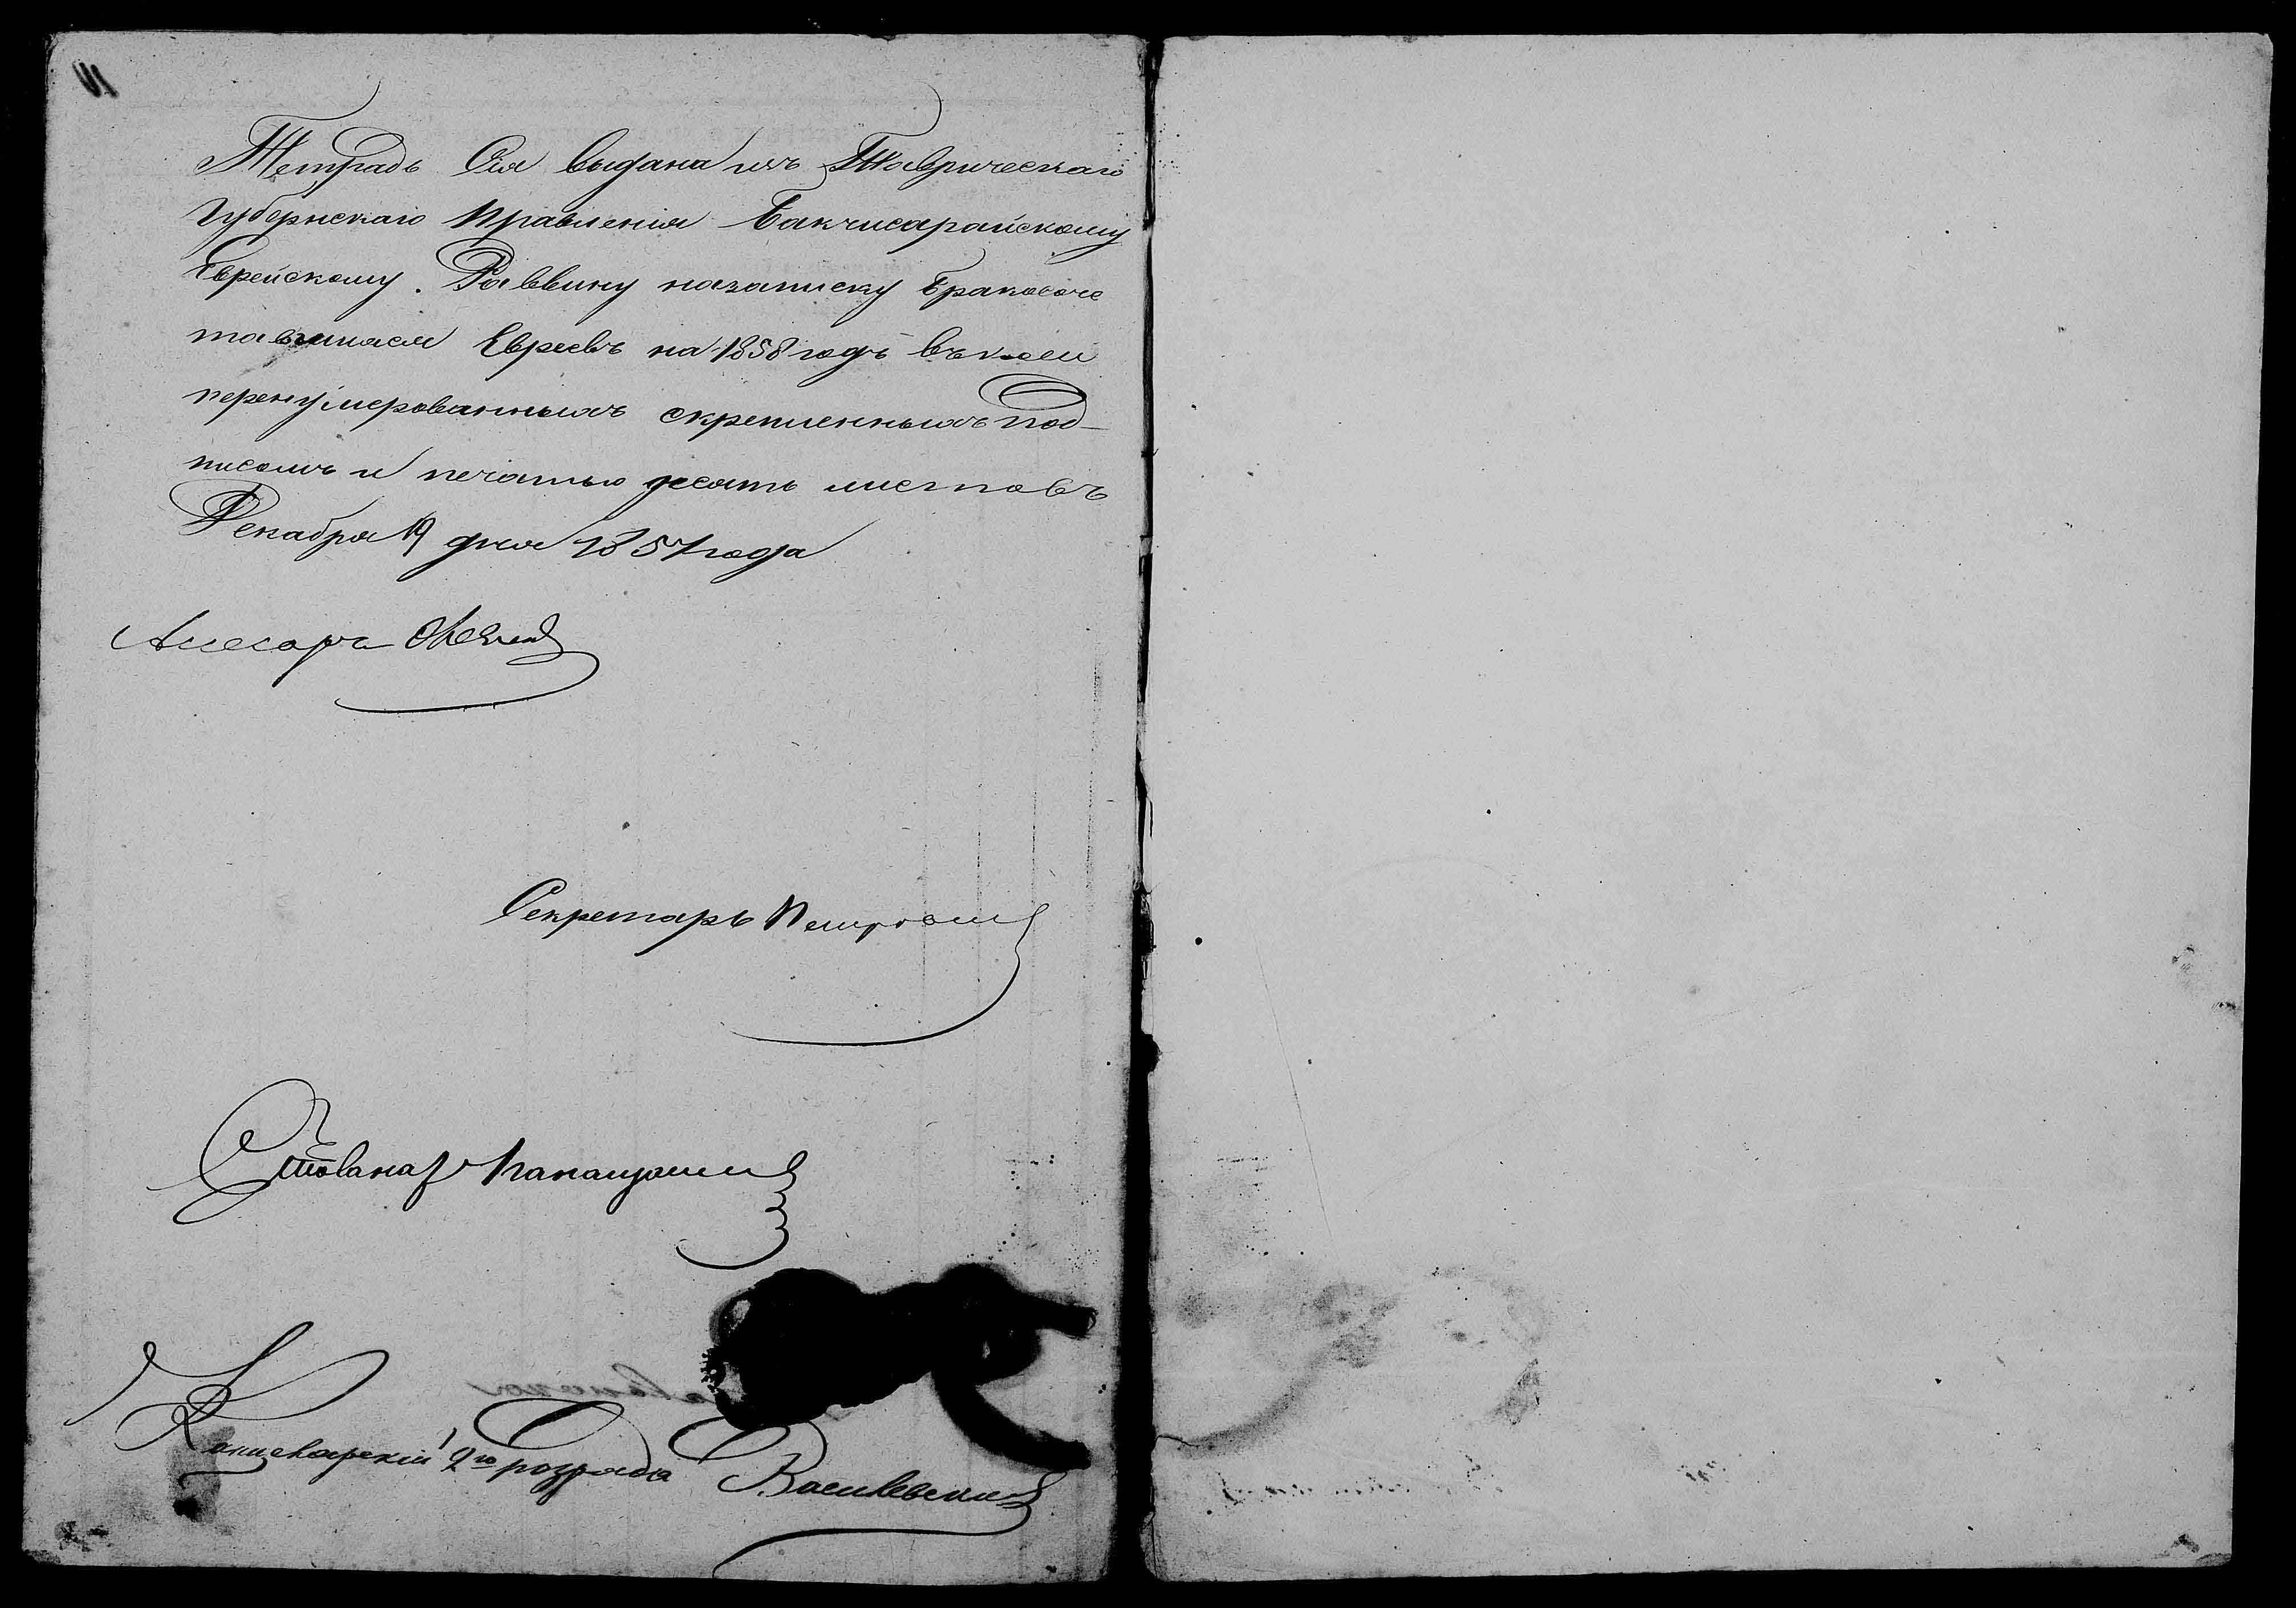 Тетрадь Сія выдана изъ Таврическаго
Губернскаго Правленія Бакчисарайскому
Еврейскому Раввину назаписку Бракосоче
тавшихся Евреевъ на 1858 годъ въ коей
перенумерованныхъ скрепленныхъ Под-
писомъ и печатью десять листовъ
Декабря 19 дня 1857 года
Асесоръ
Секретарь
Канцелярскій 2го розряда Василевский